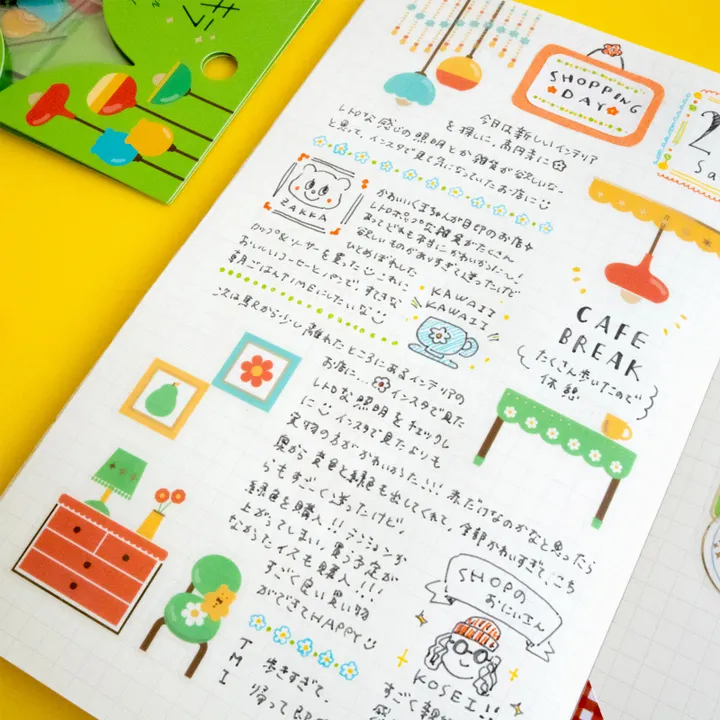 SHOPPING
DAY
今日は新しいインテリア
を探しに、高円寺に
レトロな感じの照明とか雑貨が欲しいな〜
と思って、インスタで見て気になっていたお店に
ZAKKA
かわいいくまちゃんが目印のお店
レトロポップな雑貨がたくさん
あってどれも本当にかわいかった〜!
欲しいものがありすぎて迷ったけど
ひとめぼれした
カップ&ソーサーを買った これに
おいしいコーヒーとパンで、すてきな
朝ごはんTIMEにしたいな
KAWAII
KAWAII
次は駅から少し離れたところにあるインテリアの
お店に... インスタで見た
レトロな照明をチェックし
に インスタで見たよりも
実物の方がかわいかった!!! 赤だけなのかなと思ったら
奥から黄色と緑色も出してくれて、全部かわいすぎて、こち
らもすごく迷ったけど、
緑色を購入!! テンションが
上がってしまい、買う予定が
なかったイスも購入!!!
すごく良い買い物
ができてHAPPY
CAFE
BREAK
たくさん歩いたので
休憩
SHOPの
おにいさん
KOSEI!!
すごく親
感
TMI
歩きすぎて、
帰って即
2
Sa